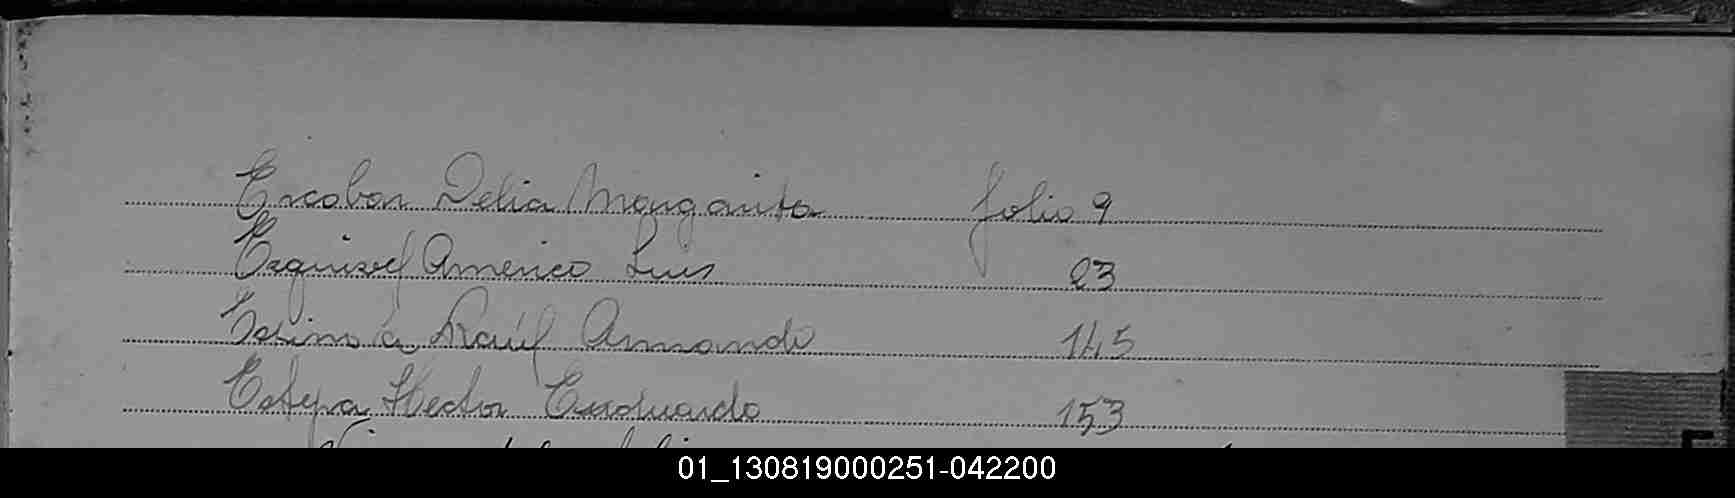 Escobar Delia Margarita folio 9
Esquivel Americo Luis 23
Raúl Armando 145
Estepa Hector Eduardo 153
01_130819000251-042200